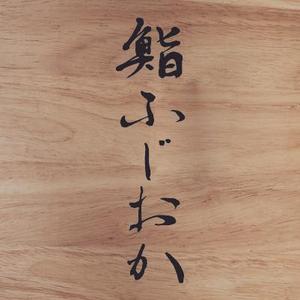 鮨ふじおか